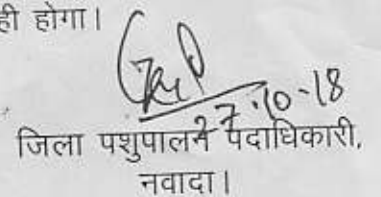 ही होगा।
27.10.18
जिला पशुपालन पदाधिकारी,
नवादा।